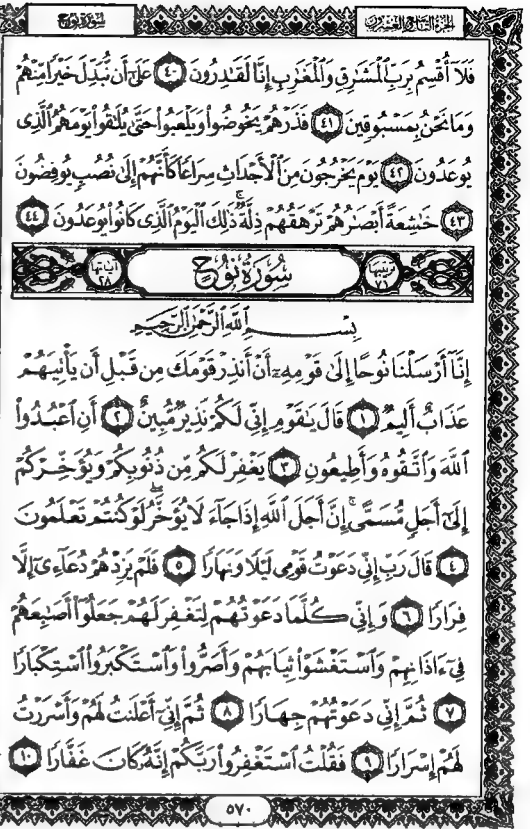 الجزء التاسع والعشرون
سورة نوح
فَلَآ أُقْسِمُ بِرَبِّ ٱلْمَشَٰرِقِ وَٱلْمَغَٰرِبِ إِنَّا لَقَٰدِرُونَ ٤٠ عَلَىٰٓ أَن نُّبَدِّلَ خَيْرًا مِّنْهُمْ
وَمَا نَحْنُ بِمَسْبُوقِينَ ٤١ فَذَرْهُمْ يَخُوضُوا۟ وَيَلْعَبُوا۟ حَتَّىٰ يُلَٰقُوا۟ يَوْمَهُمُ ٱلَّذِى
يُوعَدُونَ ٤٢ يَوْمَ يَخْرُجُونَ مِنَ ٱلْأَجْدَاثِ سِرَاعًا كَأَنَّهُمْ إِلَىٰ نُصُبٍ يُوفِضُونَ
٤٣ خَٰشِعَةً أَبْصَٰرُهُمْ تَرْهَقُهُمْ ذِلَّةٌ ۚ ذَٰلِكَ ٱلْيَوْمُ ٱلَّذِى كَانُوا۟ يُوعَدُونَ ٤٤
ترتيبها ٧١ سورة نوح آياتها ٢٨
بِسْمِ ٱللَّهِ ٱلرَّحْمَٰنِ ٱلرَّحِيمِ
إِنَّآ أَرْسَلْنَا نُوحًا إِلَىٰ قَوْمِهِۦٓ أَنْ أَنذِرْ قَوْمَكَ مِن قَبْلِ أَن يَأْتِيَهُمْ
عَذَابٌ أَلِيمٌ ١ قَالَ يَٰقَوْمِ إِنِّى لَكُمْ نَذِيرٌ مُّبِينٌ ٢ أَنِ ٱعْبُدُوا۟
ٱللَّهَ وَٱتَّقُوهُ وَأَطِيعُونِ ٣ يَغْفِرْ لَكُم مِّن ذُنُوبِكُمْ وَيُؤَخِّرْكُمْ
إِلَىٰٓ أَجَلٍ مُّسَمًّى ۚ إِنَّ أَجَلَ ٱللَّهِ إِذَا جَآءَ لَا يُؤَخَّرُ ۖ لَوْ كُنتُمْ تَعْلَمُونَ
٤ قَالَ رَبِّ إِنِّى دَعَوْتُ قَوْمِى لَيْلًا وَنَهَارًا ٥ فَلَمْ يَزِدْهُمْ دُعَآءِىٓ إِلَّا
فِرَارًا ٦ وَإِنِّى كُلَّمَا دَعَوْتُهُمْ لِتَغْفِرَ لَهُمْ جَعَلُوٓا۟ أَصَٰبِعَهُمْ
فِىٓ ءَاذَانِهِمْ وَٱسْتَغْشَوْا۟ ثِيَابَهُمْ وَأَصَرُّوا۟ وَٱسْتَكْبَرُوا۟ ٱسْتِكْبَارًا
٧ ثُمَّ إِنِّى دَعَوْتُهُمْ جِهَارًا ٨ ثُمَّ إِنِّىٓ أَعْلَنتُ لَهُمْ وَأَسْرَرْتُ
لَهُمْ إِسْرَارًا ٩ فَقُلْتُ ٱسْتَغْفِرُوا۟ رَبَّكُمْ إِنَّهُۥ كَانَ غَفَّارًا ١٠
٥٧٠